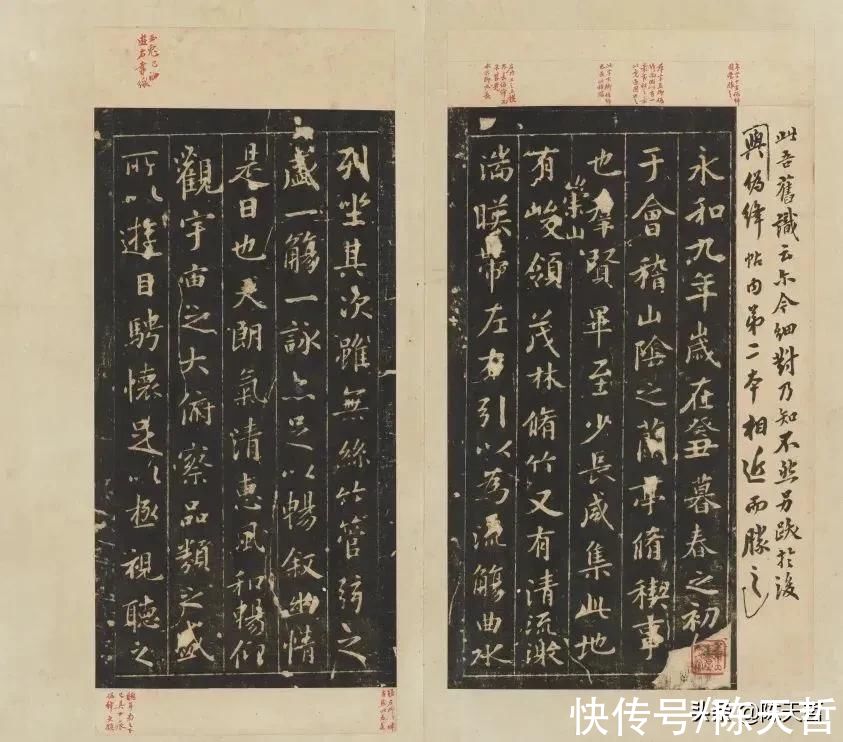 此吾舊識云尒今細對乃知不然另跋於後
與僞絳帖内第二本相近而勝之
永和九年歲在癸丑暮春之初
于會稽山陰之蘭亭脩稧事
也羣賢畢至少長咸集此地
有崇山峻領茂林脩竹又有清流激
湍暎帶左右引以為流觴曲水
列坐其次雖無絲竹管弦之
盛一觴一詠亦足以暢敘幽情
是日也天朗氣清惠風和暢仰
觀宇宙之大俯察品類之盛
所以遊目騁懷足以極視聽之
头条@陈天哲
快传号/陈天哲